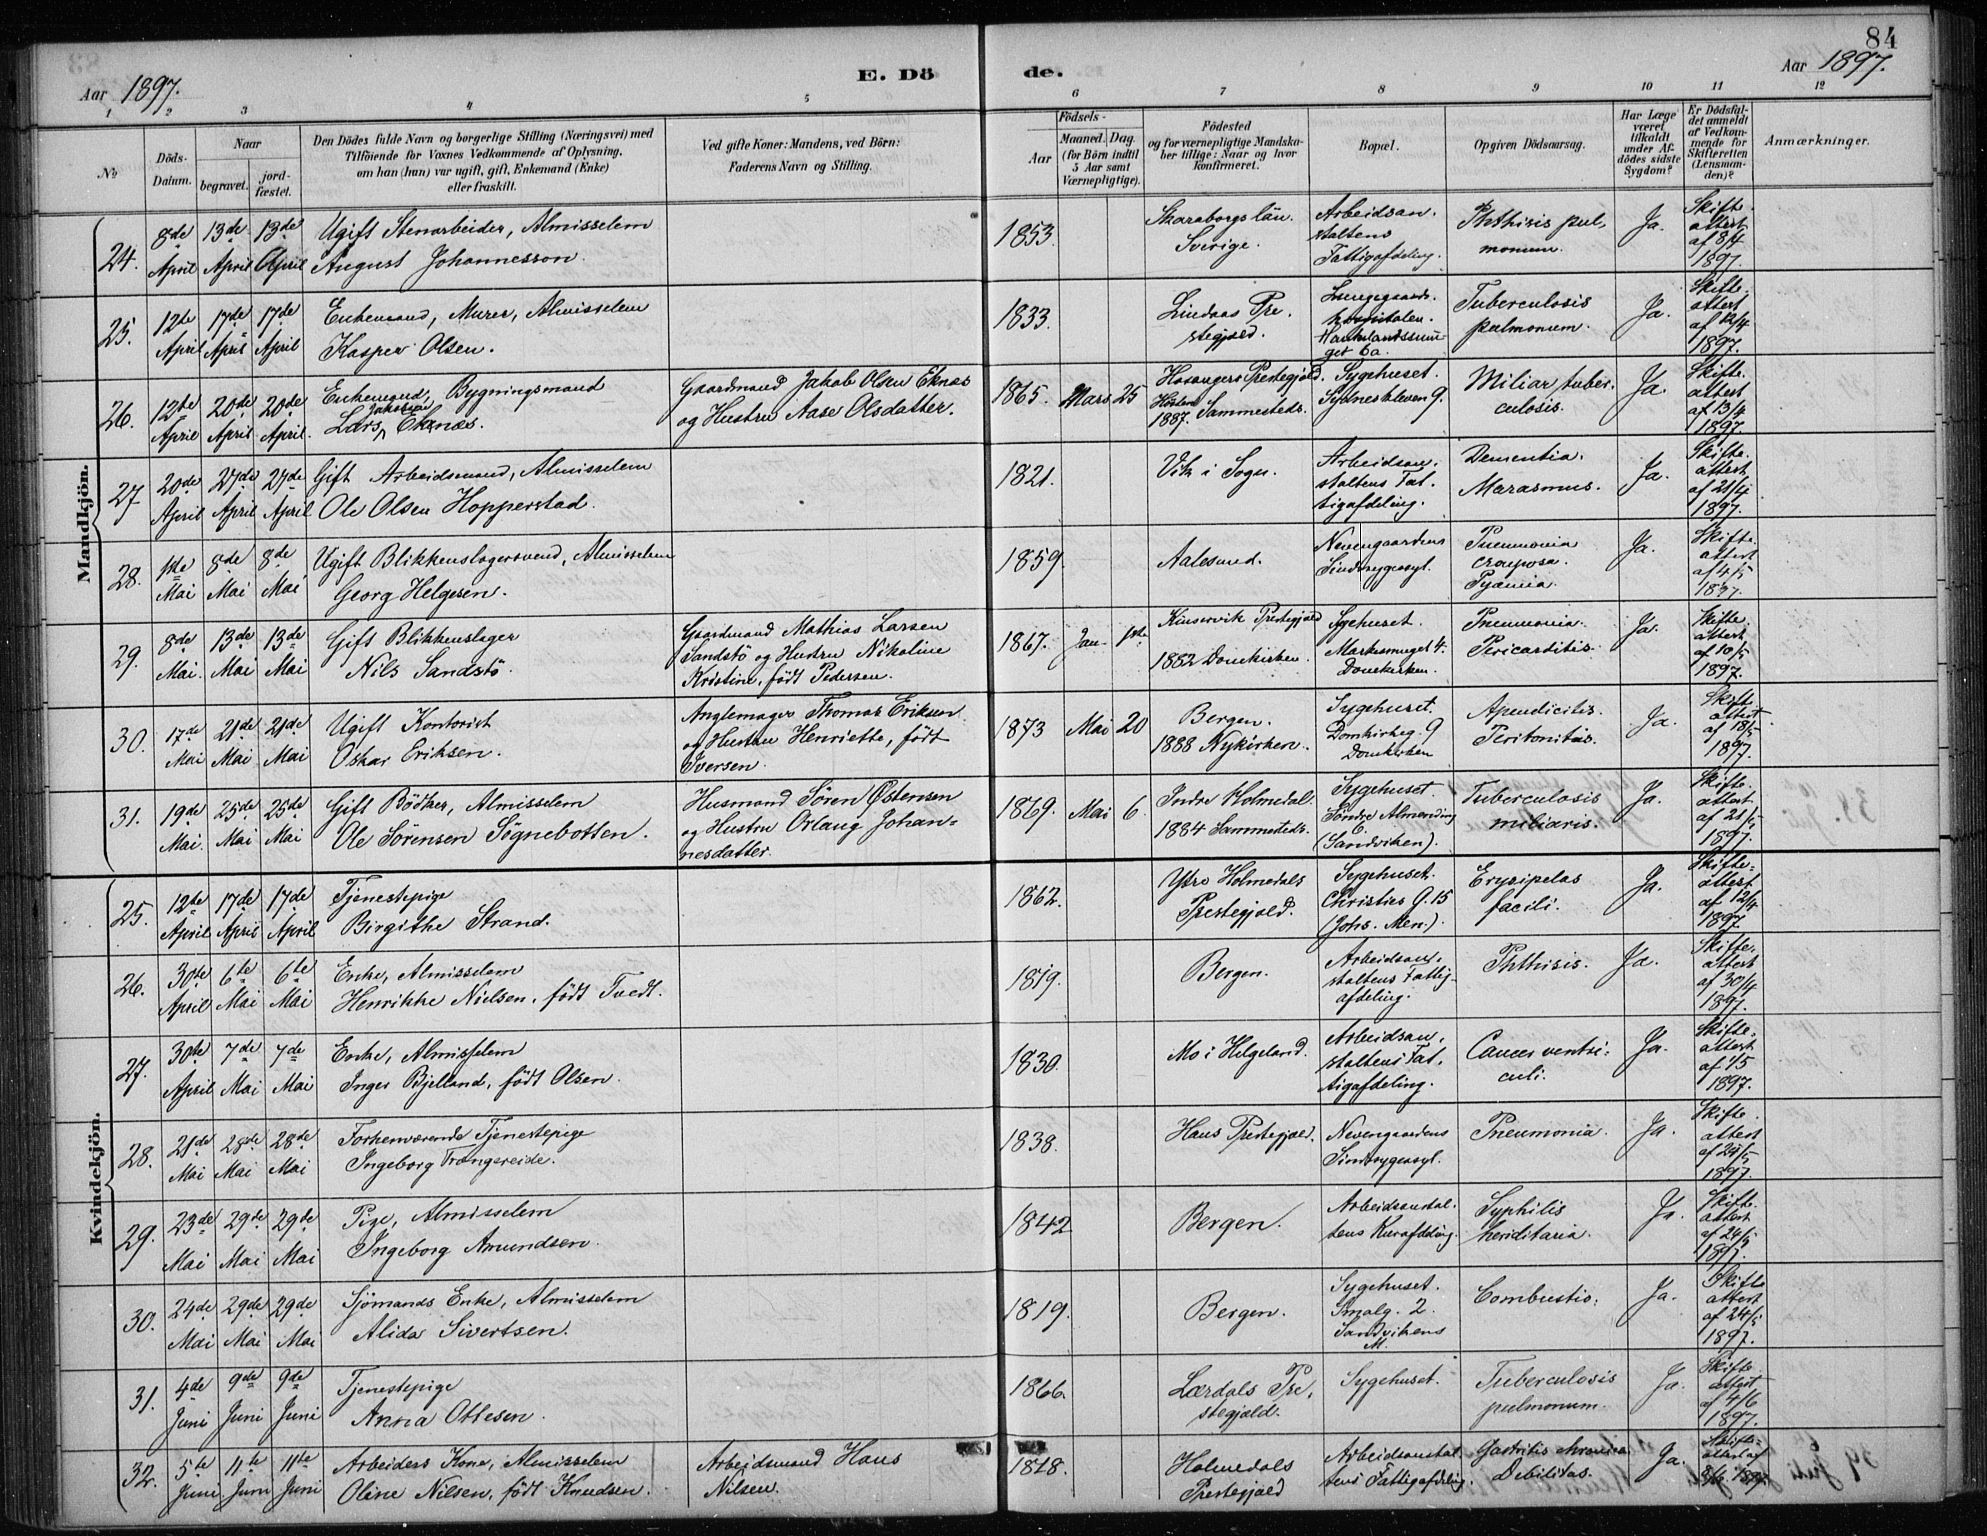 84
Aar 1897.
E. Dö
de.
Aar 1897.
1 2 3 4 5 6 7 8 9 10 11 12
№
Döds-Datum.
Naar
begravet.
jord-fæstet.
Den Dödes fulde Navn og borgerlige Stilling (Næringsvei) med
Tilföiende for Voxnes Vedkommende af Oplysning,
om han (hun) var ugift, gift, Enkemand (Enke)
eller fraskilt.
Ved gifte Koner: Mandens, ved Börn:
Faderens Navn og Stilling.
Födsels-
Aar
Maaned. Dag.
(for Börn indtil
5 Aar samt
Værnepligtige).
Födested
og for værnepligtige Mandska-
ber tillige: Naar og hvor
konfirmeret.
Bopæl.
Opgiven Dödsaarsag.
Har Læge
været
tilkaldt
under Af-
dödes sidste
Sygdom?
Er Dödsfal-
det anmeldt
af Vedkom-
mende for
Skifteretten
(Lensman-
den)?
Anmærkninger.
Mandkjön.
24. 8de April 13de April 13de April Ugift Stenarbeider, Almisselem
August Johannesson 1853. Skaraborgs län. Sverige. Arbeidsan-
staltens
Fattigafdeling. Phthisis pul-
monum. Ja. Skifte-
attest
af 8/4
1897.
25. 12te April 17de April 17de April Enkemand, Murer, Almisselem
Kasper Olsen. 1833. Lindaas Pre-
stegjæld. Lungegaards-
hospitalen.
Tuberculosis
pulmonum. Ja. Skifte-
attest
af 12/4
1897.
26. 12te April 20de April 20de April. Enkemand, Bygningsmand
Lars Jakobsen Eknæs. Gaardmand Jakob Olsen Eknæs
og Hustru Aase Olsdatter. 1865. Mars 25 Hosangers Prestegjæld.
Hösten
1887. Sammesteds. Sygehuset.
Sydneskleven 9. Miliar tuber-
culosis. Ja. Skifte-
attest
af 13/4
1897.
27 20de April 27de April 27de April Gift Arbeidsmand, Almisselem
Ole Olsen Hopperstad. 1821. Vik i Sogn. Arbeidsan-
staltens Fat-
tigafdeling. Dementia.
Marasmus. Ja. Skifte-
attest
af 21/4
1897.
28. 1ste Mai 8de Mai 8de Mai Ugift Blikkenslagersvend, Almisselem
Georg Helgesen. 1859. Aalesund. Nevengaardens
Sindssygeasyl. Pneumonia
crouposa.
Pyæmia. Ja. Skifte-
attest
af 4/5
1897.
29. 8de Mai. 13de Mai 13de Mai Gift Blikkenslager
Nils Sandstö. Gaardmand Mathias Larsen
Sandstö og Hustru Nikoline
Kristine, født Pedersen. 1867. Jan. 1ste Kinservik Prestegjæld
1882 Domkirken. Sygehuset.
Marksmuget 4.
Domkirken Pneumonia.
Pericarditis. Ja. Skifte-
attest
af 10/5
1897.
30. 17de Mai 21de Mai 21de Mai Ugift Kontorist
Oskar Eriksen. Anglemager Thomas Eriksen
og Hustru Henriette, født
Iversen. 1873 Mai 20 Bergen.
1888 Nykirken. Sygehuset.
Domkirkeg. 9
Domkirken Apendicitis.
Peritonitis. Ja. Skifte
attest
af 18/5
1897.
31. 19de Mai. 25de Mai 25de Mai Gift Bödker, Almisselem
Ole Sörensen Sögnebotten. Husmand Sören Østensen
og Hustru Orlaug Johan-
nesdatter. 1869. Mai 6. Indre Holmedal.
1884 Sammesteds. Sygehuset.
Søndre Almending
6.
(Sandviken). Tuberculosis
miliaris. Ja. Skifte-
attest
af 21/5
1897.
Kvindekjön.
25. 12te April 17de April 17de April Tjenestepige
Birgithe Strand. 1862. Ytre Holmedals
Prestegjæld. Sygehuset.
Christies G. 15
(Johs. Men.). Erysipelas
facili. Ja. Skifte-
attest
af 12/4
1897.
26. 30te April 6te Mai 6te Mai Enke, Almisselem
Henrikke Nielsen, født Tvedt. 1819. Bergen. Arbeidsan-
staltens Fattig-
afdeling. Phthisis. Ja. Skifte-
attest
af 30/4
1897.
27. 30te April 7de Mai 7de Mai Enke, Almisselem
Inger Bjelland, født Olsen. 1830. Mo i Helgeland. Arbeidsan-
staltens Fat-
tigafdeling. Cancer ventri-
culi. Ja. Skifte-
attest
af 1/5
1897.
28. 21de Mai 28de Mai 28de Mai Forhenværende Tjenestepige
Ingeborg Trængereide. 1838. Haus Prestegjæld. Nevengaardens
Sindssygeasyl. Pneumonia. Ja. Skifte-
attest
af 24/5
1897.
29. 23de Mai 29de Mai 29de Mai Pige, Almisselem
Ingeborg Amundsen. 1842 Bergen. Arbeidsanstal-
tens Kurafdeling. Syphilis
heriditaria. Ja. Skifte-
attest
af 24/5
1897.
30. 24de Mai 29de Mai 29de Mai Sjömands Enke, Almisselem
Alida Sivertsen. 1819. Bergen. Sygehuset.
Smalg. 2.
Sandvikens
M. Combustio. Ja. Skifte
attest
af 24/5
1897.
31. 4de Juni 9de Juni 9de Juni Tjenestepige
Anna Ottesen. 1866. Lærdals Pre-
stegjæld. Sygehuset. Tuberculosis
pulmonum. Ja. Skifte
attest
af 4/6
1897.
32. 5te Juni 11te Juni 11te Juni Arbeiders Kone, Almisselem
Oline Nilsen, født Knudsen. Arbeidsmand Hans
Nilsen. 1828. Holmedals
Prestegjæld Arbeidsanstal-
tens Fattigafdeling. Gastritis chronica
Debilitas. Ja. Skifte-
attest af
8/6 1897.